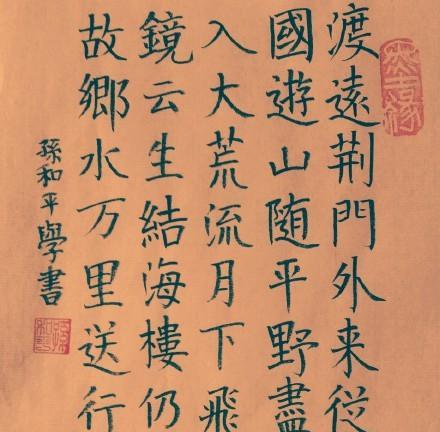 渡遠荆門外来從
國遊山随平野盡
入大荒流月下飛
鏡云生結海樓仍
故鄉水万里送行
孫和平學書